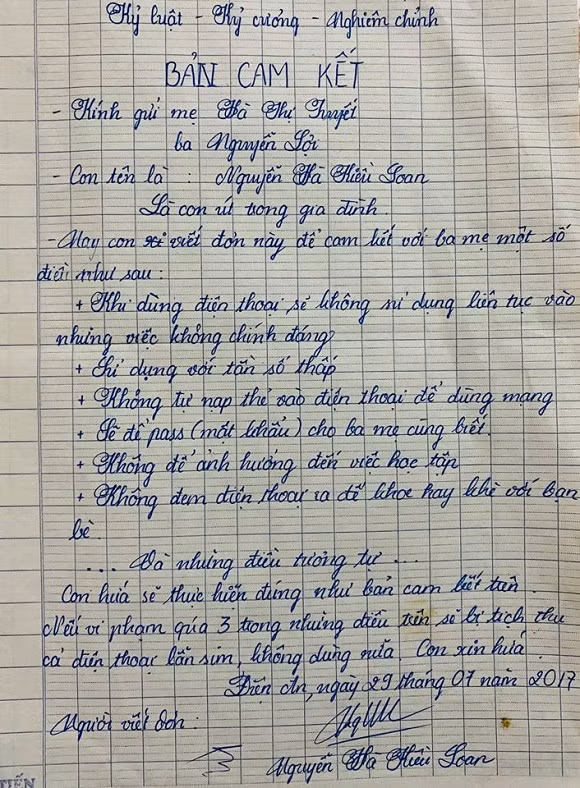 Kỷ luật - Kỷ cương - Nghiêm chỉnh
BẢN CAM KẾT
- Kính gửi mẹ Hà Thị Tuyết
ba Nguyễn Lợi
- Con tên là : Nguyễn Hà Kiều Loan
Là con út trong gia đình.
- Nay con viết đơn này để cam kết với ba mẹ một số
điều như sau :
+ Khi dùng điện thoại sẽ không sử dụng liên tục vào
những việc không chính đáng
+ Sử dụng với tần số thấp
+ Không tự nạp thẻ vào điện thoại để dùng mạng
+ Sẽ để pass (mật khẩu) cho ba mẹ cùng biết.
+ Không để ảnh hưởng đến việc học tập
+ Không đem điện thoại ra để khoe hay khè với bạn
bè.
... Và những điều tương tự ...
Con hứa sẽ thực hiện đúng như bản cam kết trên.
Nếu vi phạm qúa 3 trong những điều trên sẽ bị tịch thu
cả điện thoại lẫn sim, không dùng nữa. Con xin hứa.
Điện An, ngày 29 tháng 07 năm 2017
Người viết đơn :
Nguyễn Hà Kiều Loan
TIẾN